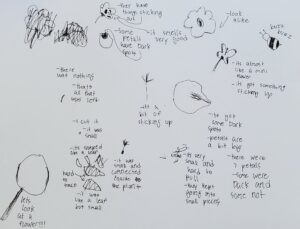 -they have
things sticking
out
-some
petals
have Dark
spots
-it smells
very good
look
alike
buzz
buzz
-its almost
like a mini
flower
-it got something
sticking up
-there
was nothing
-thats
all that
was left
-its a
bit of
sticking up
-it got
some Dark
spots
-petals are
a bit big
-i cut it
-it was
small
-its shaped
like a leaf
hard
to
trace
-it was
like a leaf
but small
-it was
small and
connected
to the plant
-its very
small and
hard to
pull
-they kept
going into
small pieces
-there were
7 petals
-some were
Dark and
some not
lets
look
at a
flower!!!!